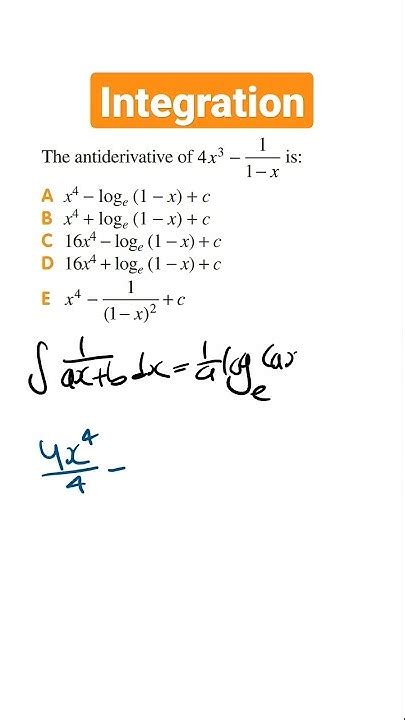 Integration
The antiderivative of 4x³ − 1/(1 − x) is:
A x⁴ − logₑ (1 − x) + c
B x⁴ + logₑ (1 − x) + c
C 16x⁴ − logₑ (1 − x) + c
D 16x⁴ + logₑ (1 − x) + c
E x⁴ − 1/(1 − x)² + c
∫ 1/(ax+b) dx = 1/a logₑ (ax
4x⁴/4 −